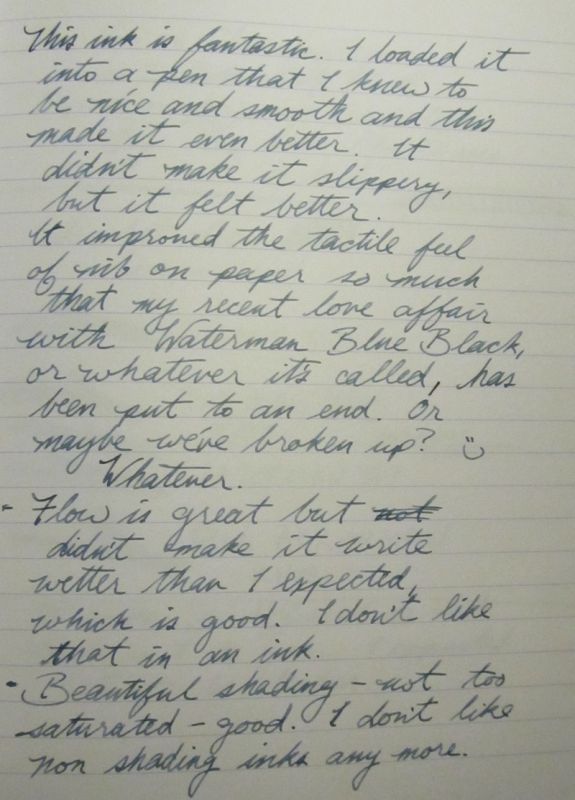 This ink is fantastic. I loaded it
into a pen that I knew to
be nice and smooth and this
made it even better. It
didn't make it slippery,
but it felt better.
It improved the tactile feel
of nib on paper so much
that my recent love affair
with Waterman Blue Black,
or whatever it's called, has
been put to an end. Or
maybe we've broken up? :)
Whatever.
- Flow is great but not
didn't make it write
wetter than I expected,
which is good. I don't like
that in an ink.
- Beautiful shading - not too
saturated - good. I don't like
non shading inks any more.